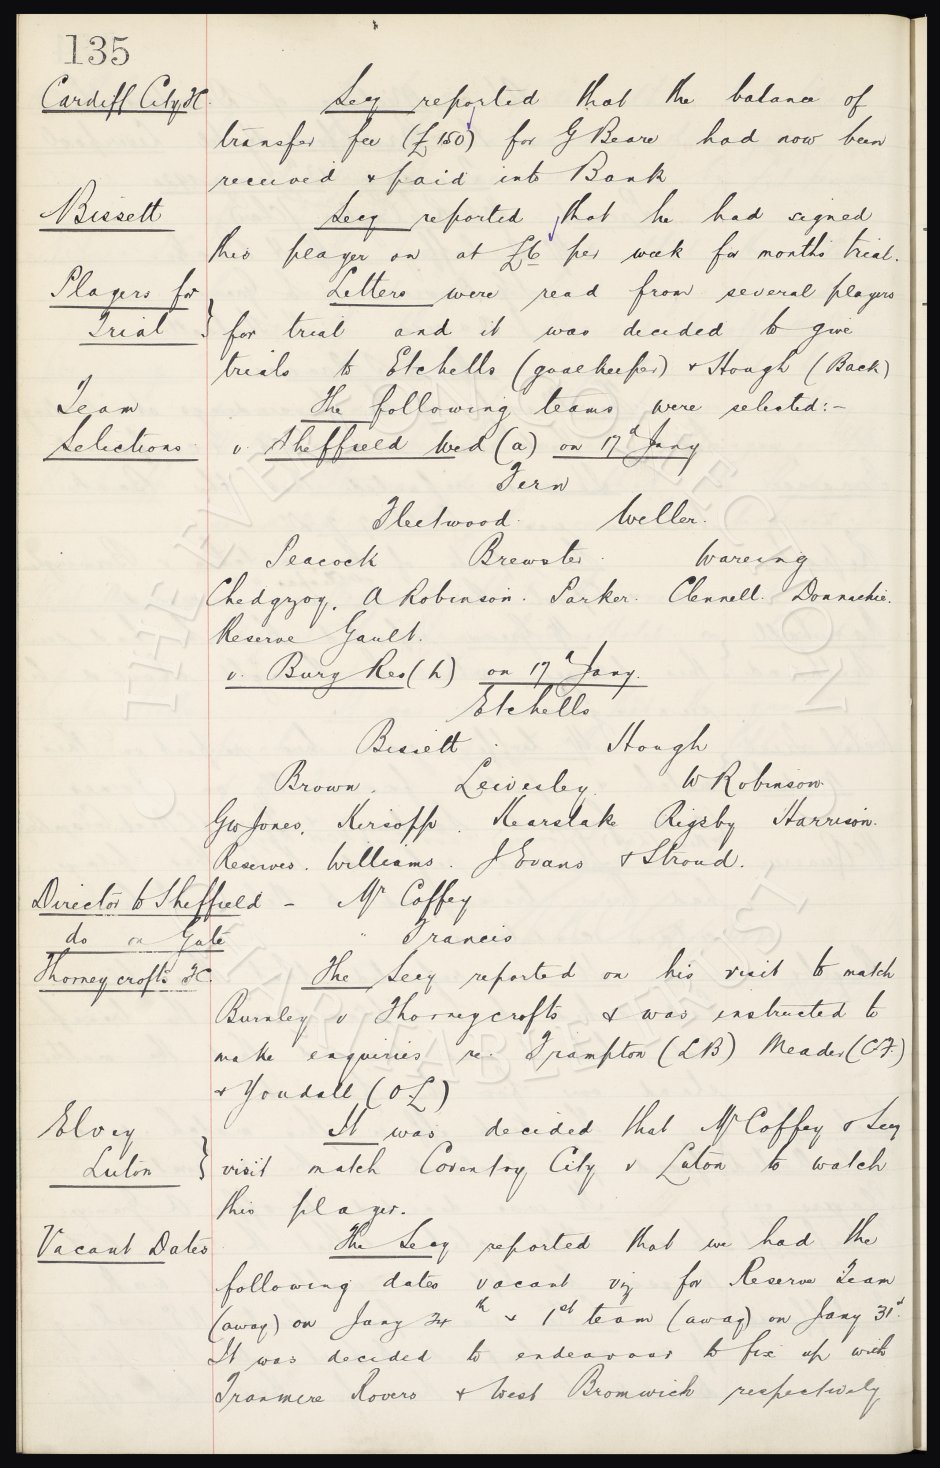 135
Cardiff City FC. Secy reported that the balance of
transfer fee (£150) for G Beare had now been
received & paid into Bank
Bissett Secy reported that he had signed
this player on at £6 per week for months trial.
Players for Letters were read from several players
Trial } for trial and it was decided to give
trials to Etchells (goalkeeper) & Hough (Back)
Team The following teams were selected:-
Selections v. Sheffield Wed (a) on 17th Jany
Fern
Fleetwood. Weller.
Peacock Brewster. Wareing
Chedgzoy. A Robinson. Parker. Clennell. Donnachie.
Reserve Gault.
v. Bury Res (h) on 17th Jany.
Etchells
Bissett. Hough
Brown. Leivesley. W Robinson.
GW Jones. Kirsopp. Kearslake Rigsby Harrison.
Reserves. Williams. J Evans & Stroud.
Director to Sheffield - Mr Coffey
do on Gate " Francis
Thorneycrofts FC. The Secy reported on his visit to match
Burnley v Thorneycrofts & was instructed to
make enquiries re. Frampton (LB) Meades (CF.)
& Youdall (OL)
Elvey It was decided that Mr Coffey & Secy
Luton } visit match Coventry City v Luton to watch
this player.
Vacant Dates The Secy reported that we had the
following dates vacant viz for Reserve Team
(away) on Jany 24th & 1st team (away) on Jany 31st.
It was decided to endeavour to fix up with
Tranmere Rovers & West Bromwich respectively